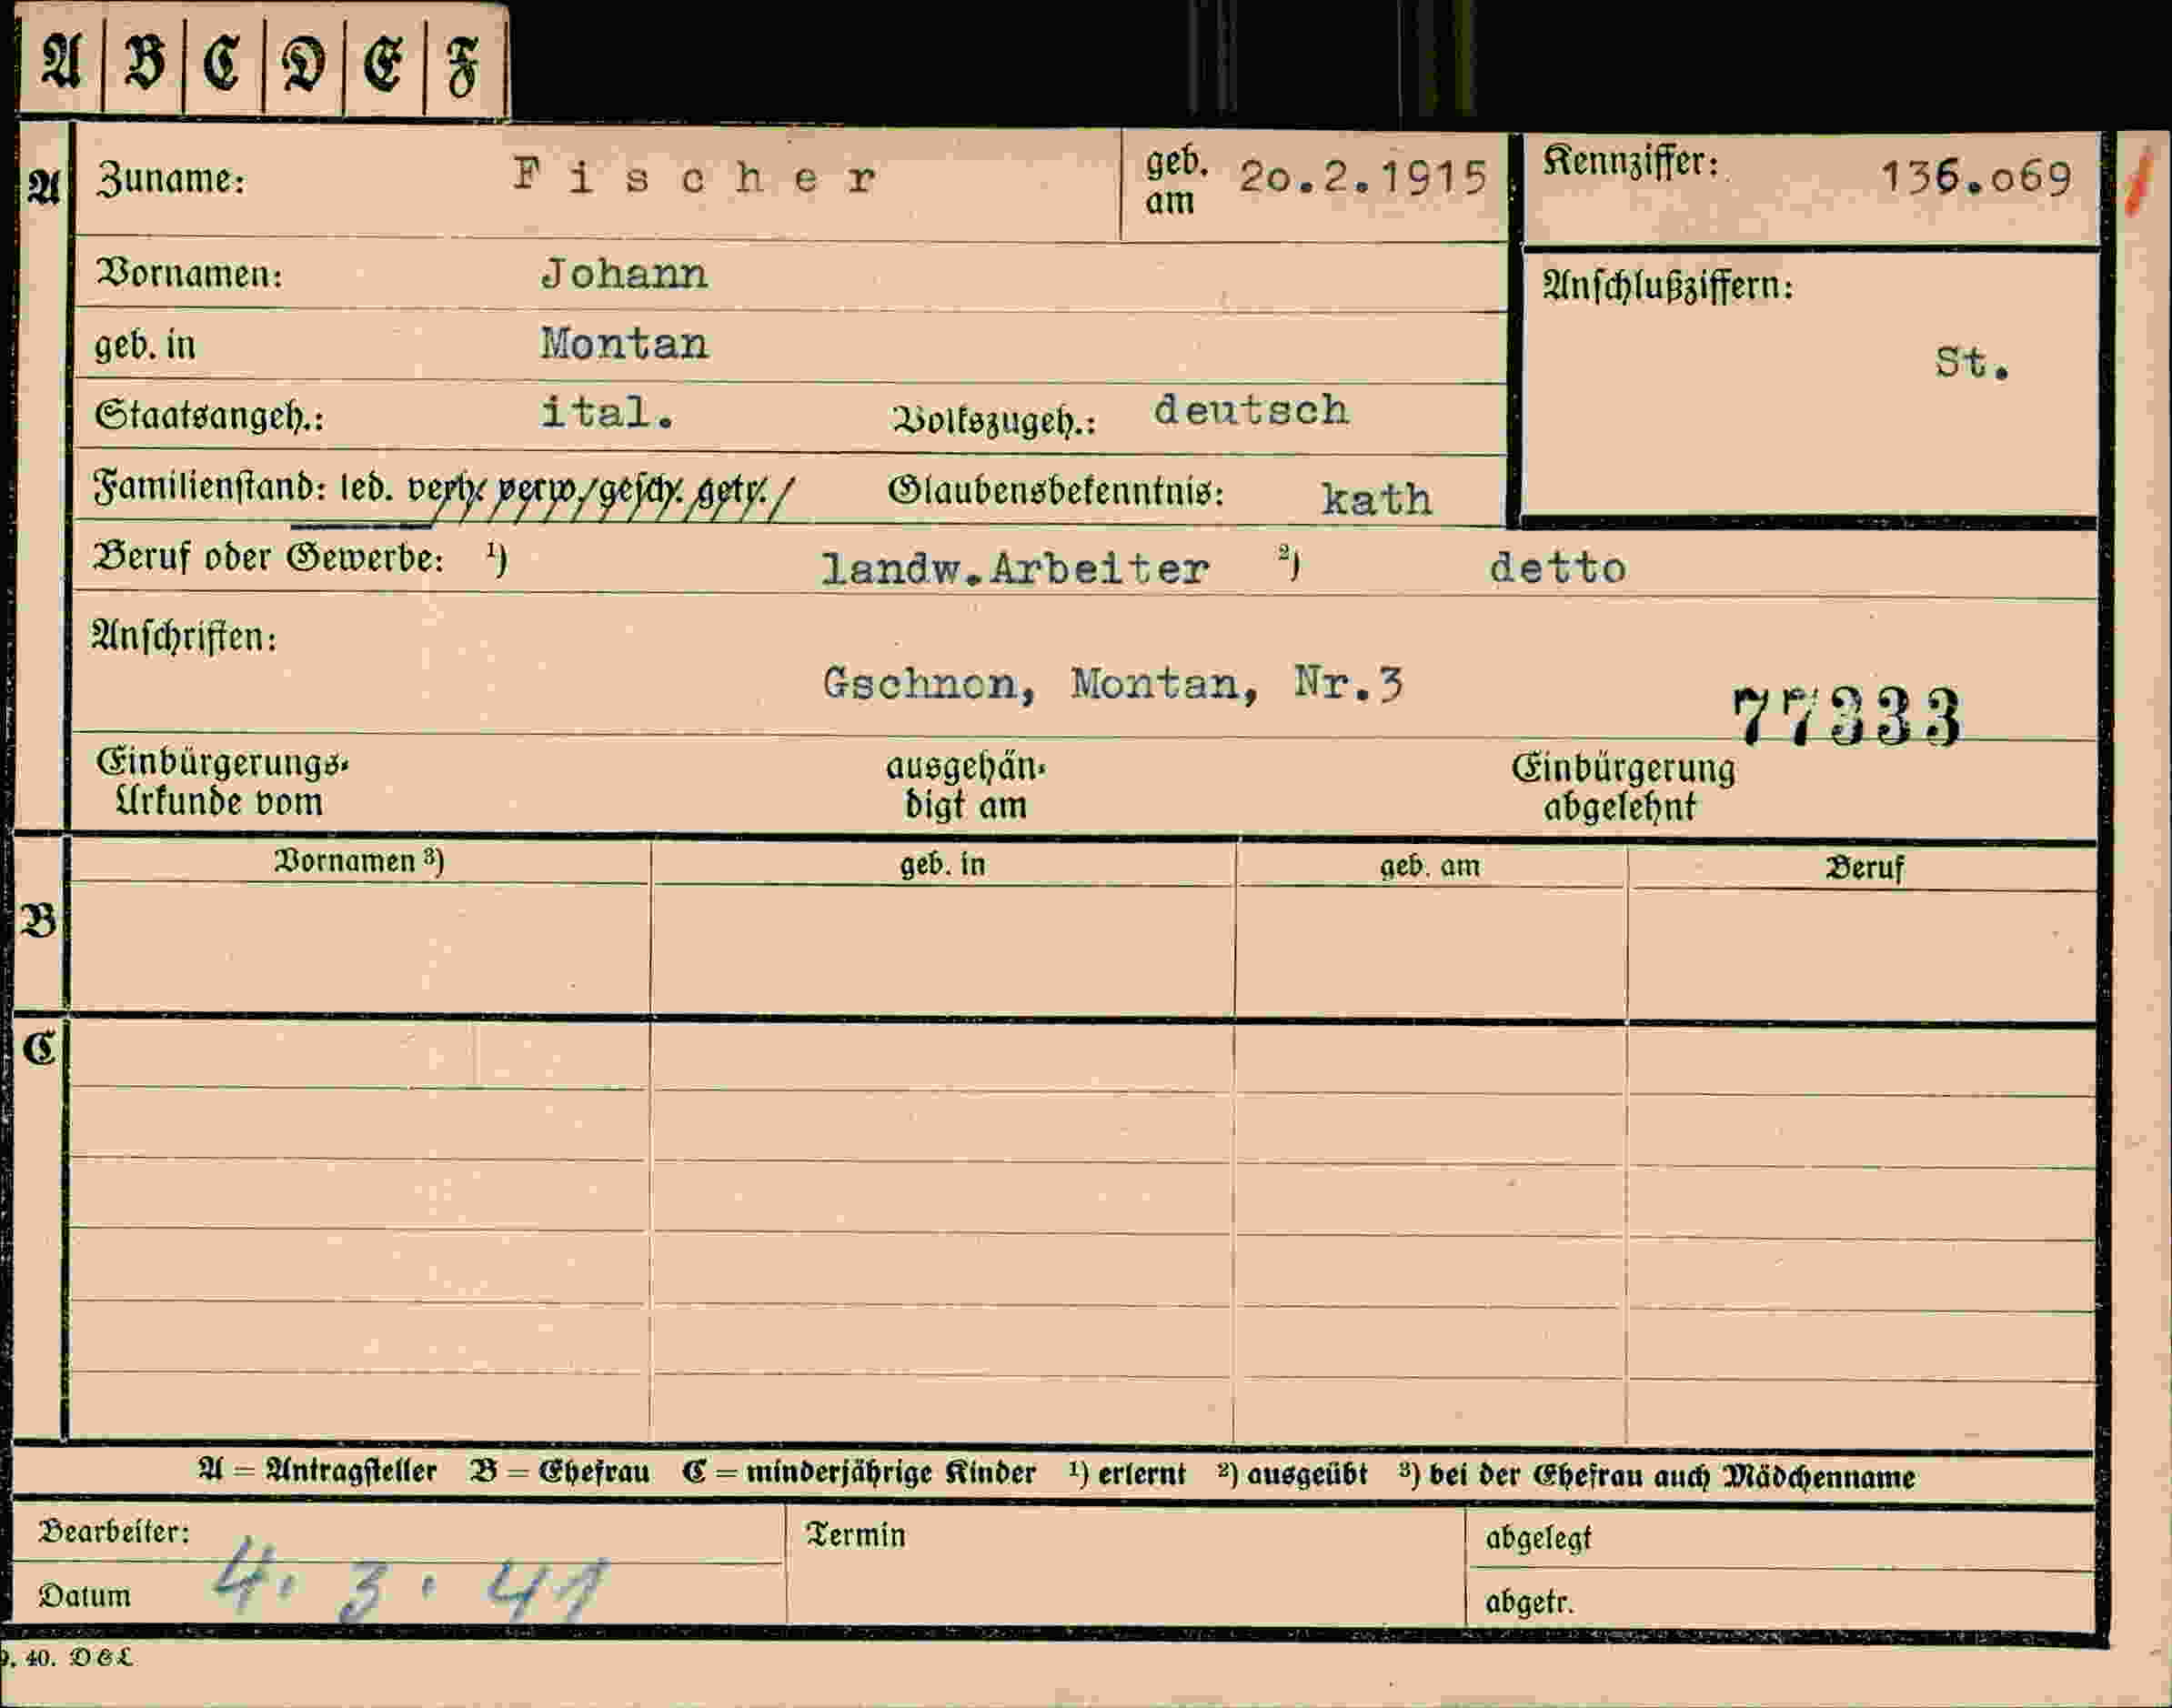 A B C D E F
A Zuname: Fischer geb. am 2o.2.1915 Kennziffer: 136.o69
Vornamen: Johann
Anschlußziffern:
geb. in Montan
St.
Staatsangeh.: ital. Volkszugeh.: deutsch
Familienstand: led. verh. verw. gesch. getr. Glaubensbekenntnis: kath
Beruf oder Gewerbe: ¹) landw.Arbeiter ²) detto
Anschriften:
Gschnon, Montan, Nr.3
77333
Einbürgerungs- ausgehän- Einbürgerung
Urkunde vom digt am abgelehnt
Vornamen ³) geb. in geb. am Beruf
B
C
A = Antragsteller B = Ehefrau C = minderjährige Kinder ¹) erlernt ²) ausgeübt ³) bei der Ehefrau auch Mädchenname
Bearbeiter: Termin abgelegt
Datum 4. 3. 41 abgetr.
40. D&L